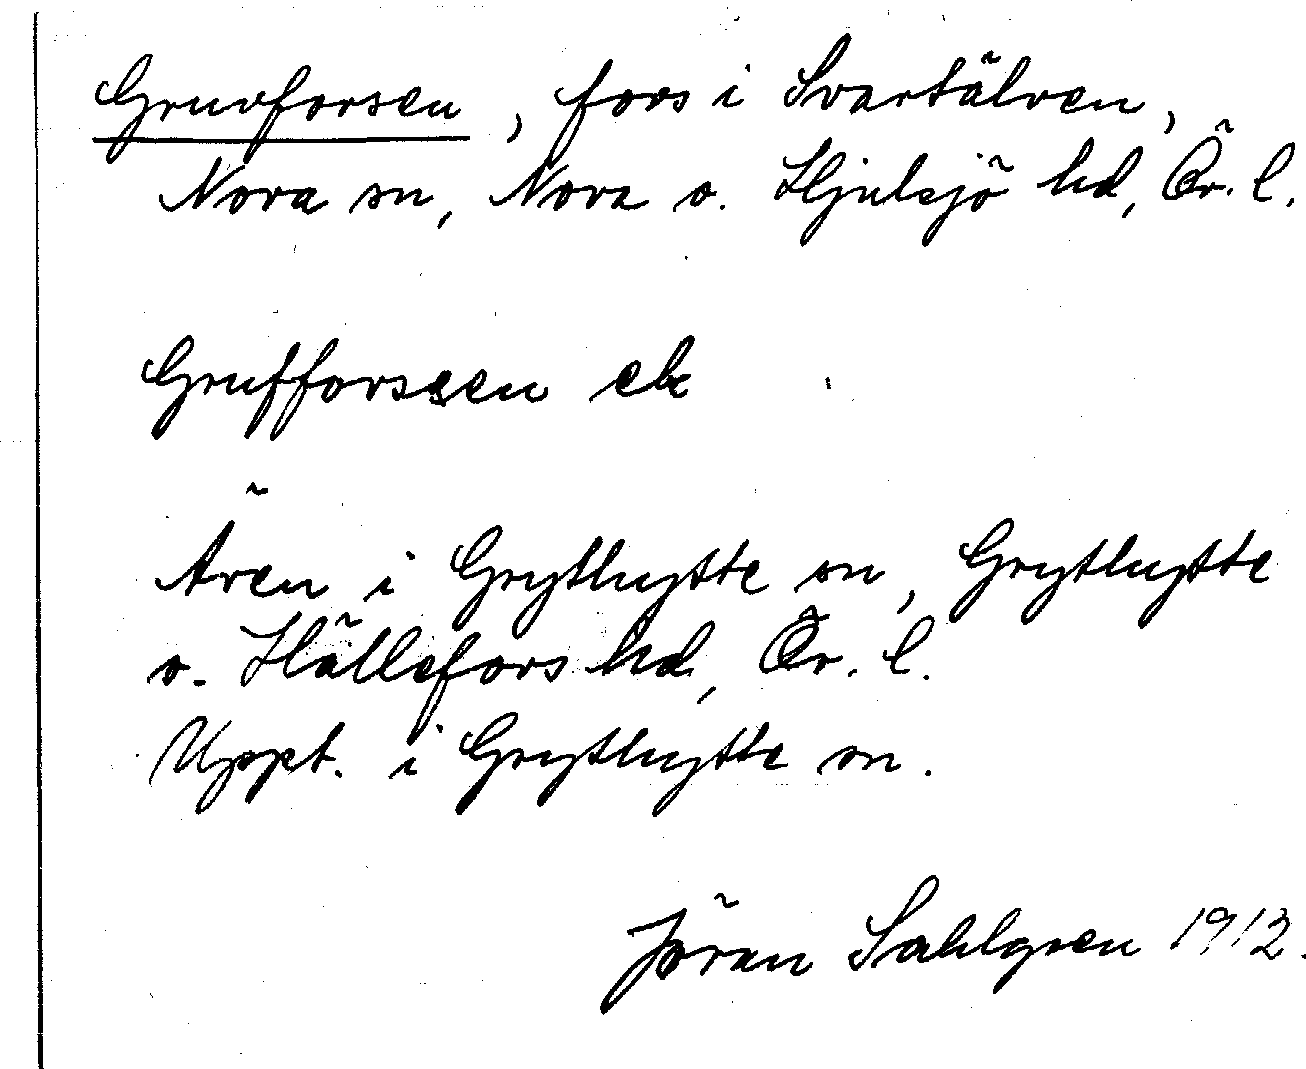 Gruvforsen, fors i Svartälven,
Nora sn, Nora o. Hjulsjö hd, Ör. l.
Grufforssen ek
Ären i Grythytte sn, Grythytte
o. Hällefors hd, Ör. l.
Uppt. i Grythytte sn.
Jöran Sahlgren 1912.